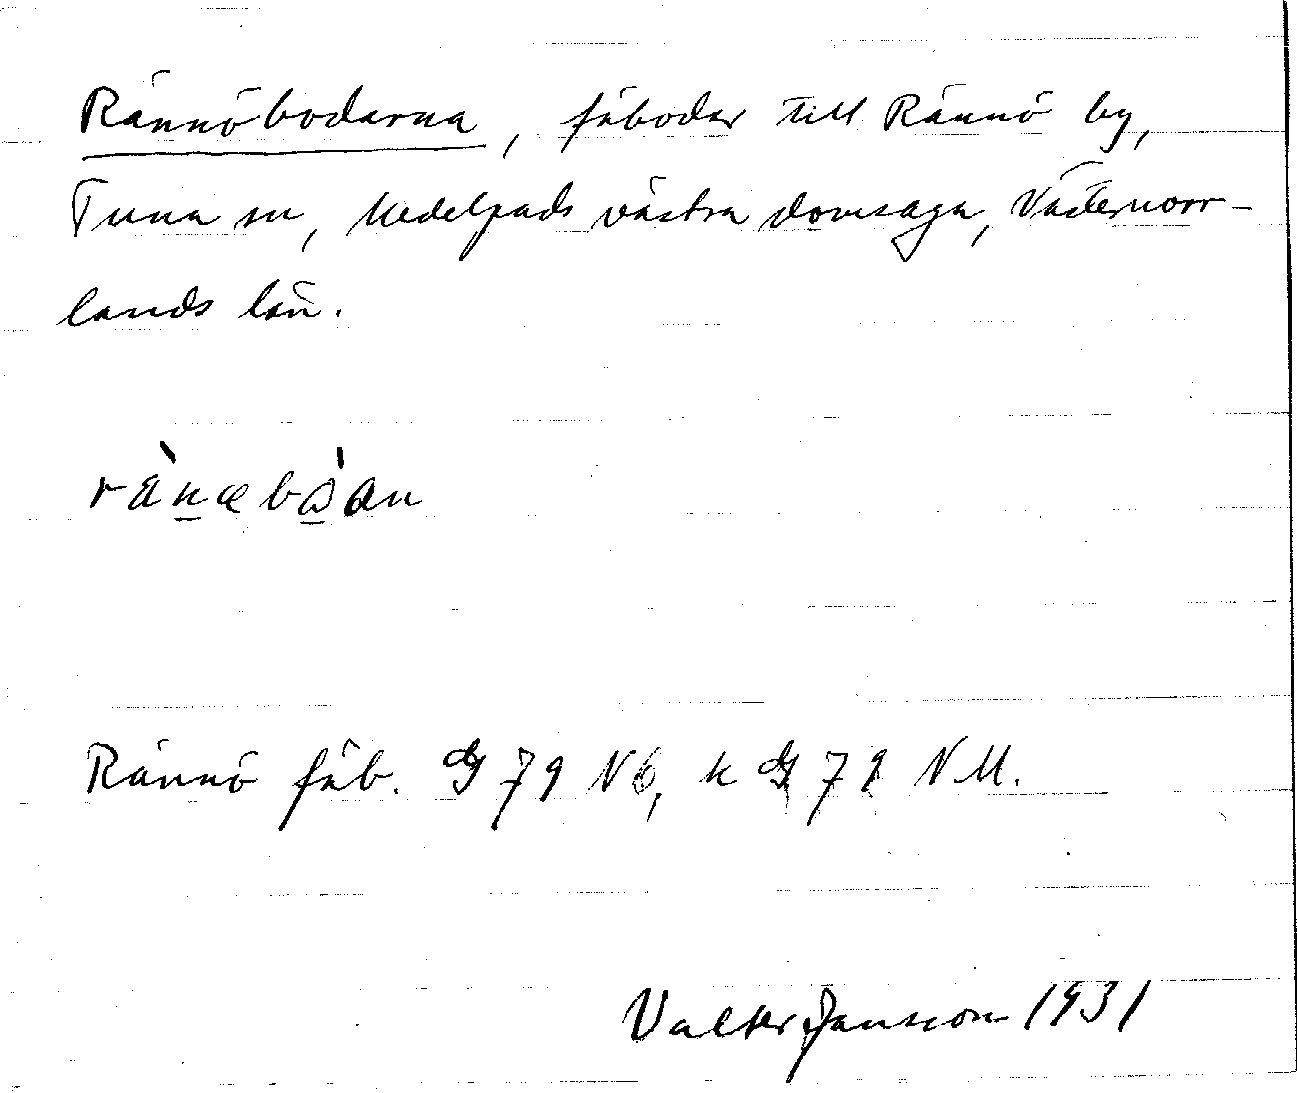 Rännöbodarna, fäbodar till Rännö by,
Tuna sn, Medelpads västra domsaga, Västernorr-
lands län.
rä̀nœbɷ̀an
Rännö fäb. G 79 Nb, K G 79 NM.
Valter Jansson 1931